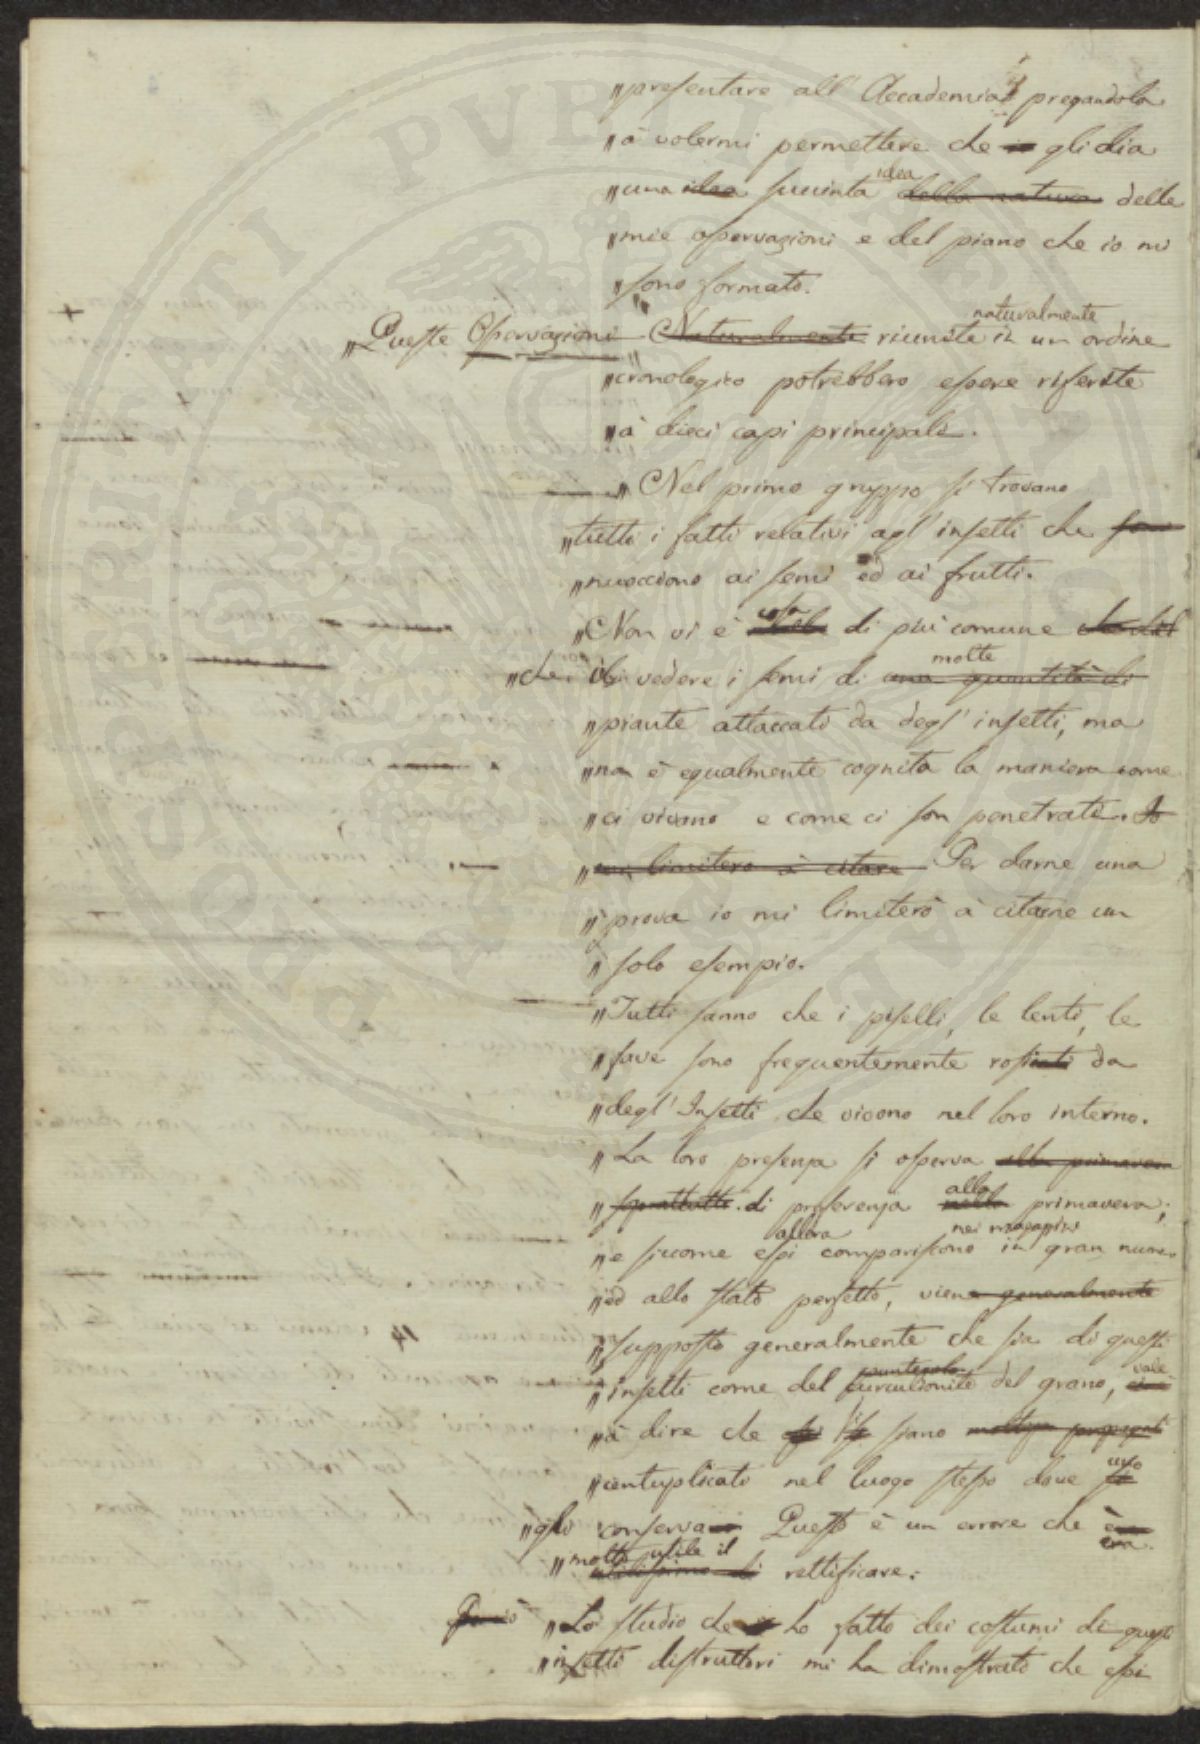 "presentare all' Accademia pregandola
"a volermi permettere che io gli dia
"una idea succinta idea della natura delle
"mie osservazioni e del piano che io mi
"sono formato.
"Queste Osservazioni Naturalmente riunite naturalmente in un ordine
"cronologico potrebbero essere riferite
"a dieci capi principali.
"Nel primo gruppo si trovano
"tutti i fatti relativi agl' insetti che
"nuocciono ai semi ed ai frutti.
"Non vi è cosa di più comune che del
"che il vedere i semi di molte una quantità di
"piante attaccati da degl' insetti, ma
"non è egualmente cognita la maniera come
"ci vivono e come ci son penetrati. Io
"mi limiterò à citare Per darne una
"prova io mi limiterò à citarne un
"solo esempio.
"Tutti sanno che i piselli, le lenti, le
"fave sono frequentemente rosicati da
"degl' Insetti che vivono nel loro interno.
"La loro presenza si osserva alla primavera
"soprattutto di preferenza nella alla primavera;
"e siccome essi allora compariscono nei magazzini in gran numero
"ed allo stato perfetto, viene generalmente
"supposto generalmente che sia di questi
"insetti come del punteruolo curculionite del grano, vale
"à dire che si siano
"centuplicati nel luogo stesso dove uno si
"gli conserva Questo è un errore che è era
"molto utile il utilissimo di rettificare.
Perciò "Lo studio che io ho fatto dei costumi di questi
"insetti distruttori mi ha dimostrato che essi
PROSPERITATI PVBLICAE AVGENDAE